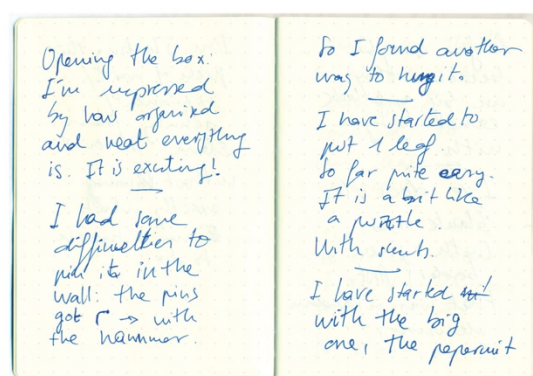 Opening the box:
I'm impressed
by how organized
and neat everything
is. It is exciting!
I had some
difficulties to
pin it in the
wall: the pins
got → with
the hammer.
So I found another
way to hung it.
I have started to
put 1 leaf.
So far quite easy.
It is a bit like
a puzzle.
With scents.
I have started
with the big
one, the pepermint